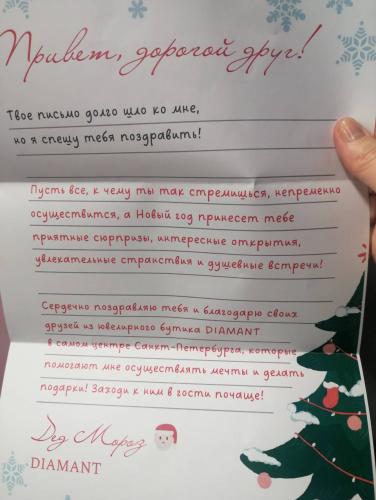 Привет, дорогой друг!
Твое письмо долго шло ко мне,
но я спешу тебя поздравить!
Пусть все, к чему ты так стремишься, непременно
осуществится, а Новый год принесет тебе
приятные сюрпризы, интересные открытия,
увлекательные странствия и душевные встречи!
Сердечно поздравляю тебя и благодарю своих
друзей из ювелирного бутика DIAMANT
в самом центре Санкт-Петербурга, которые
помогают мне осуществлять мечты и делать
подарки! Заходи к ним в гости почаще!
Дед Мороз
DIAMANT